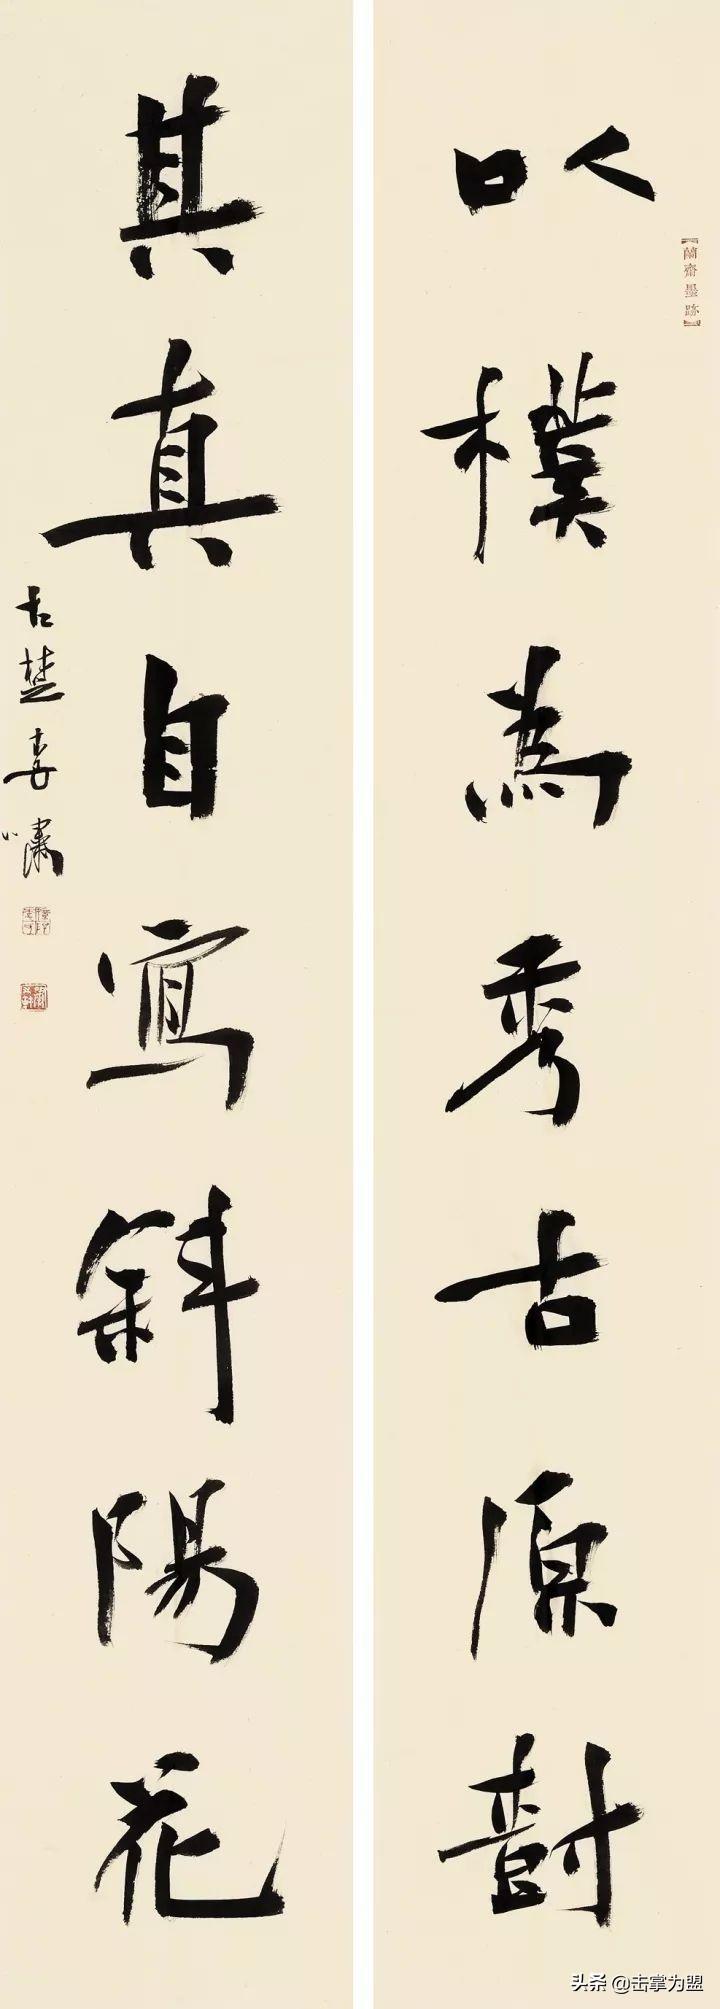 以樸為秀古原樹
【蘭齋墨跡】
其真自寫斜陽花
古楚李嘯
头条 @击掌为盟